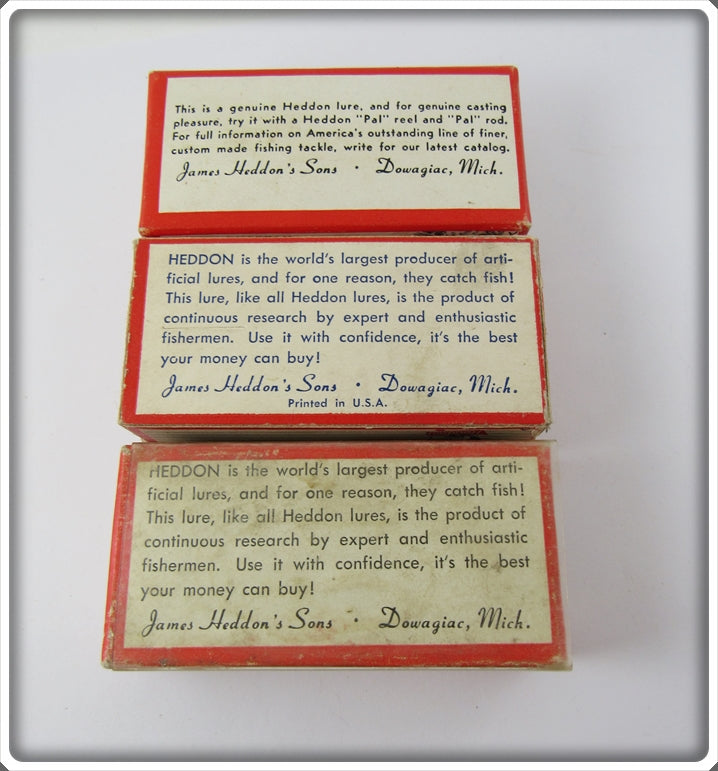 This is a genuine Heddon lure, and for genuine casting
pleasure, try it with a Heddon "Pal" reel and "Pal" rod.
For full information on America's outstanding line of finer,
custom made fishing tackle, write for our latest catalog.
James Heddon's Sons · Dowagiac, Mich.
HEDDON is the world's largest producer of arti-
ficial lures, and for one reason, they catch fish!
This lure, like all Heddon lures, is the product of
continuous research by expert and enthusiastic
fishermen. Use it with confidence, it's the best
your money can buy!
James Heddon's Sons · Dowagiac, Mich.
Printed in U.S.A.
HEDDON is the world's largest producer of arti-
ficial lures, and for one reason, they catch fish!
This lure, like all Heddon lures, is the product of
continuous research by expert and enthusiastic
fishermen. Use it with confidence, it's the best
your money can buy!
James Heddon's Sons · Dowagiac, Mich.